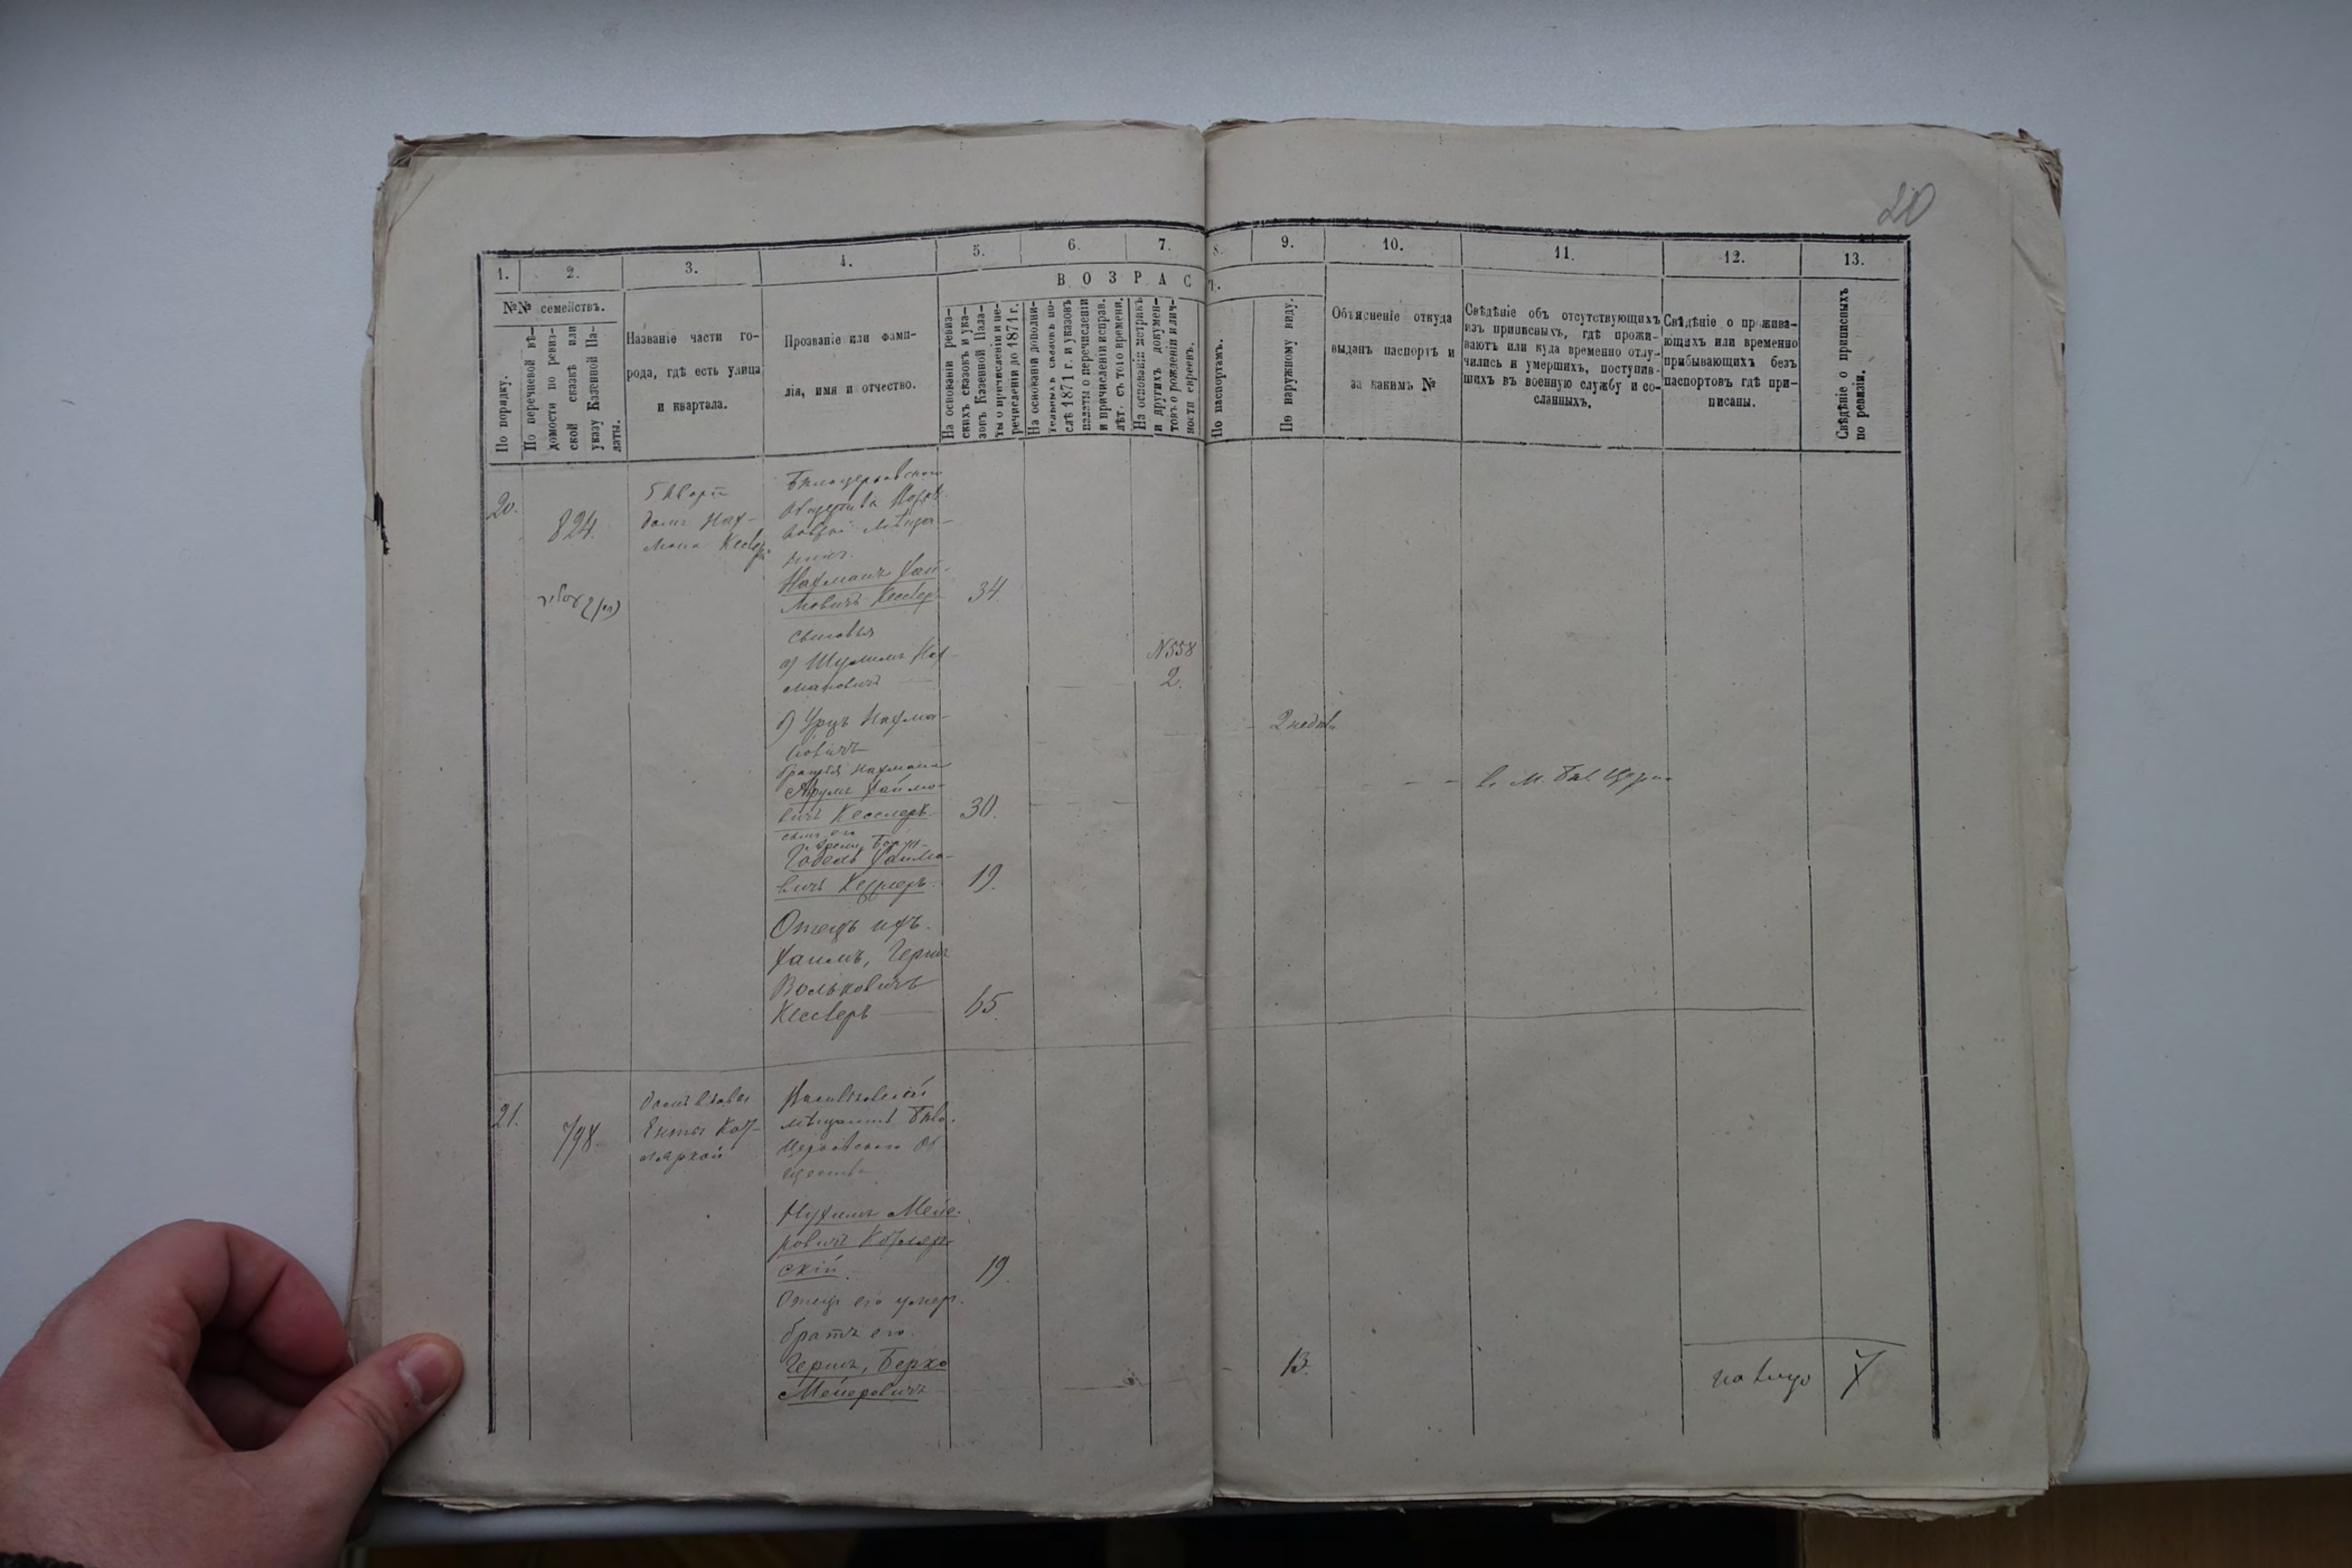 20
1. 2. 3. 4. 5. 6. 7. 8. 9. 10. 11. 12. 13.
ВОЗРАС
№№ семействъ.
По порядку.
По перечневой вѣ-
домости по ревиз-
ской сказкѣ или
указу Казенной Па-
латы.
Названіе части го-
рода, гдѣ есть улица
и квартала.
Прозваніе или фами-
лія, имя и отчество.
На основаніи ревиз-
скихъ сказокъ и ука-
зовъ Казенной Пала-
ты о причисленіи и пе-
речисленіи до 1871 г.
На основаніи дополни-
тельныхъ сказокъ по-
слѣ 1871 г. и указовъ
палаты о перечисленіи
и причисленіи исправ.
лѣт. съ того времени.
На основаніи метрикъ
и другихъ докумен-
товъ о рожденіи и лич-
ности евреевъ.
По паспортамъ.
По наружному виду.
Объясненіе откуда
выданъ паспортъ и
за какимъ №
Свѣдѣніе объ отсутствующихъ
изъ приписныхъ, гдѣ прожи-
ваютъ или куда временно отлу-
чились и умершихъ, поступив-
шихъ въ военную службу и со-
сланныхъ.
Свѣдѣніе о прожива-
ющихъ или временно
прибывающихъ безъ
паспортовъ гдѣ при-
писаны.
Свѣдѣніе о приписныхъ
по ревизіи.
20. 824.
домъ Нах-
мана
Бѣлоцерковскаго
общества
Нахманъ Хаи-
мовичъ Кесслеръ 34.
сыновья
а) Шулимъ Нах-
мановичъ №558
2.
б) Нахма-
новичъ 2 недѣли
братья Нахмана
Хаимо-
вичъ Кесслеръ 30. въ М. Бѣл. Церкв
сынъ его
Хаимо-
вичъ Кесслеръ. 19.
Отецъ ихъ.
Хаимъ, Герш
Вольковичъ
Кесслеръ 65.
21. 798.
домъ вдовы
Васильковскій
мѣщанинъ Бѣло-
церковскаго об-
щества
Нухимъ Мейе-
ровичъ Котляр-
скій. 19.
Отецъ его умер.
братъ его.
Гершъ, Берко
Мейеровичъ 13.
на лицо